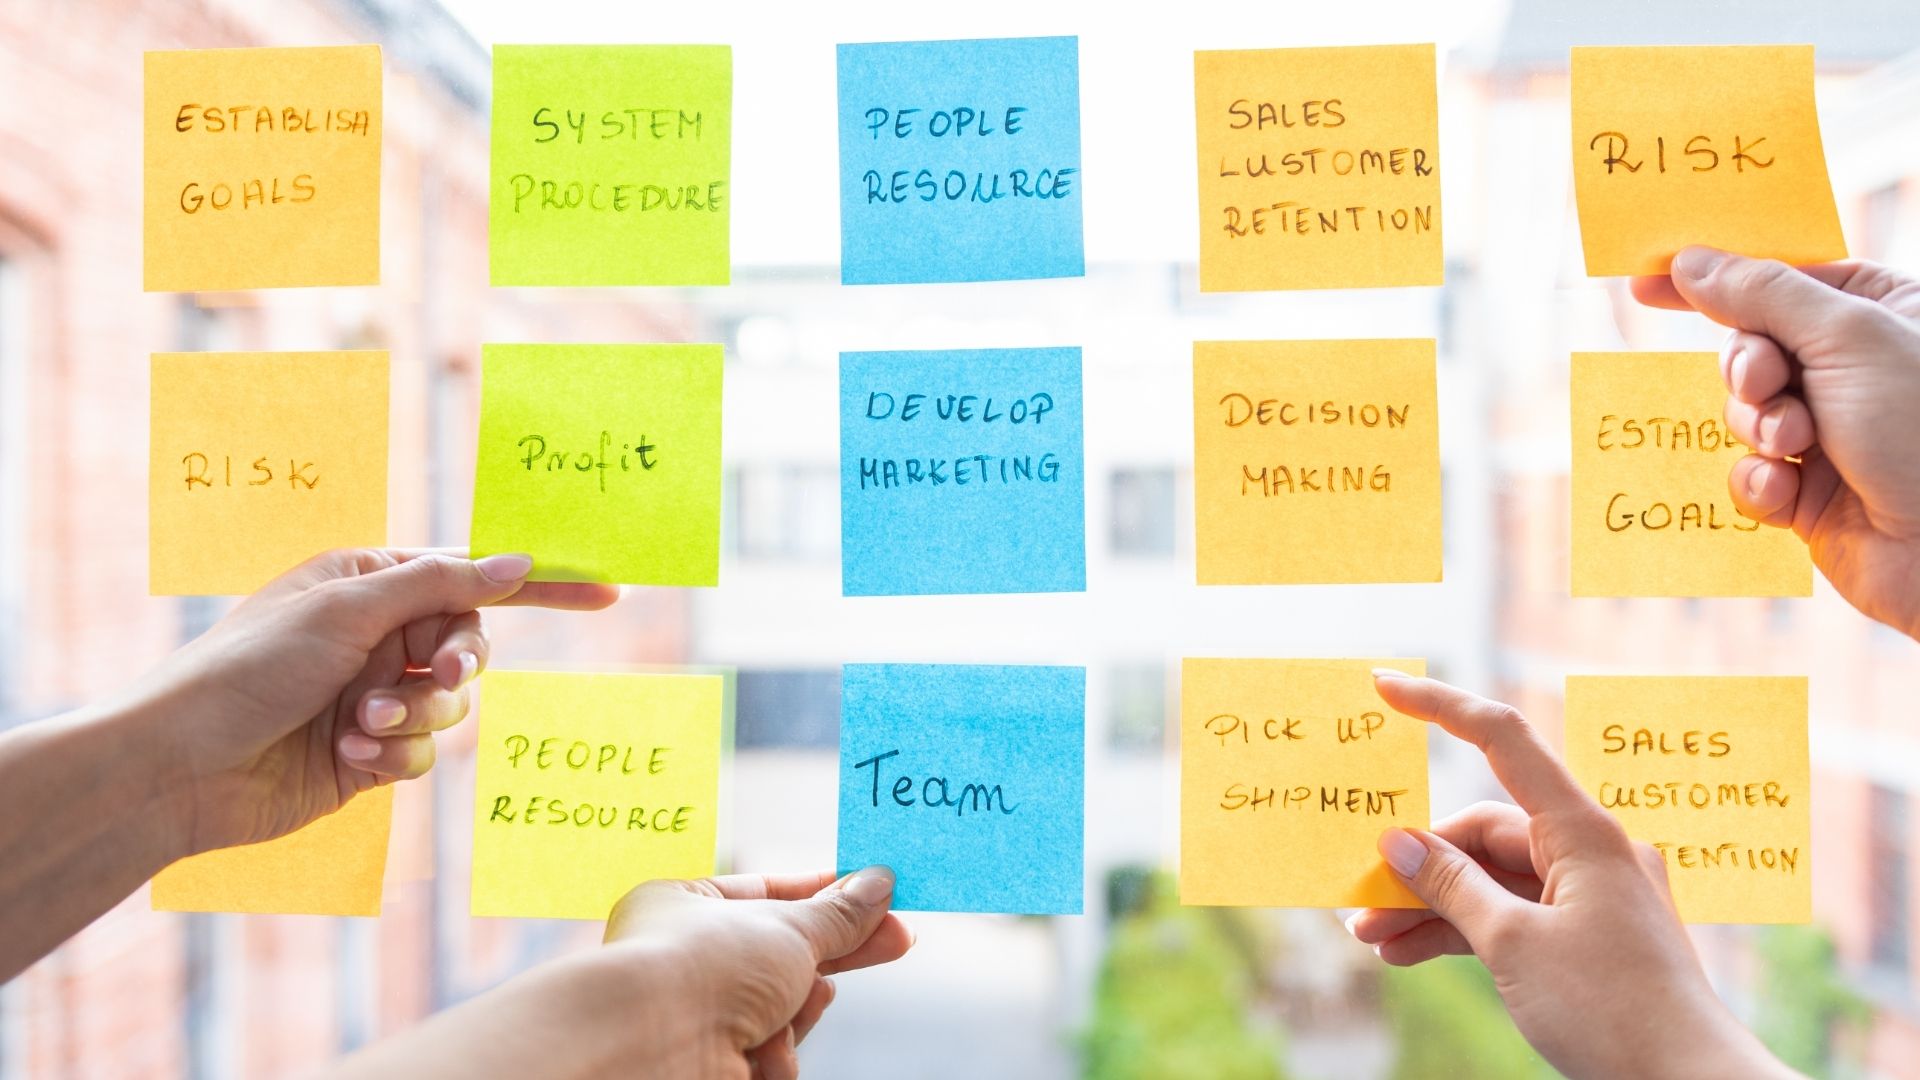 ESTABLISH
GOALS
SYSTEM
PROCEDURE
PEOPLE
RESOURCE
SALES
LUSTOMER
RETENTION
RISK
RISK
Profit
DEVELOP
MARKETING
DECISION
MAKING
ESTABL
GOALS
PEOPLE
RESOURCE
Team
PICK UP
SHIPMENT
SALES
CUSTOMER
TENTION